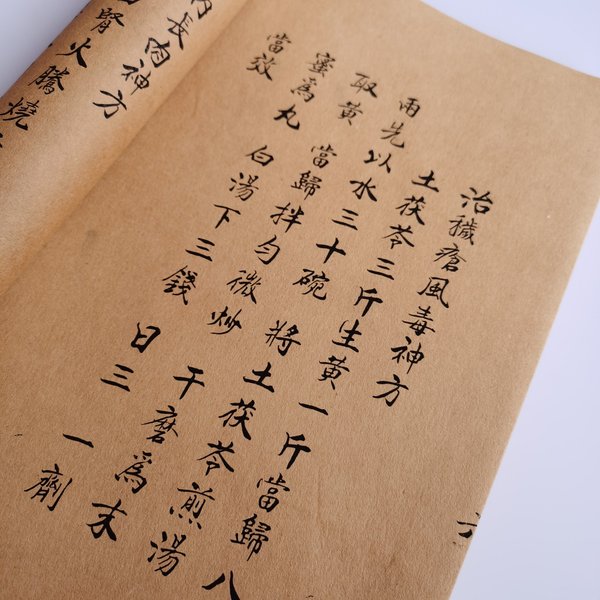 治穢瘡風毒神方
土茯苓三斤生黄一斤當歸八
兩先以水三十碗 將土茯苓煎湯
取黄 當歸拌匀微炒 干磨爲末
蜜爲丸 白湯下三錢 日三 一劑
當效
内長肉神方
腎火騰燒